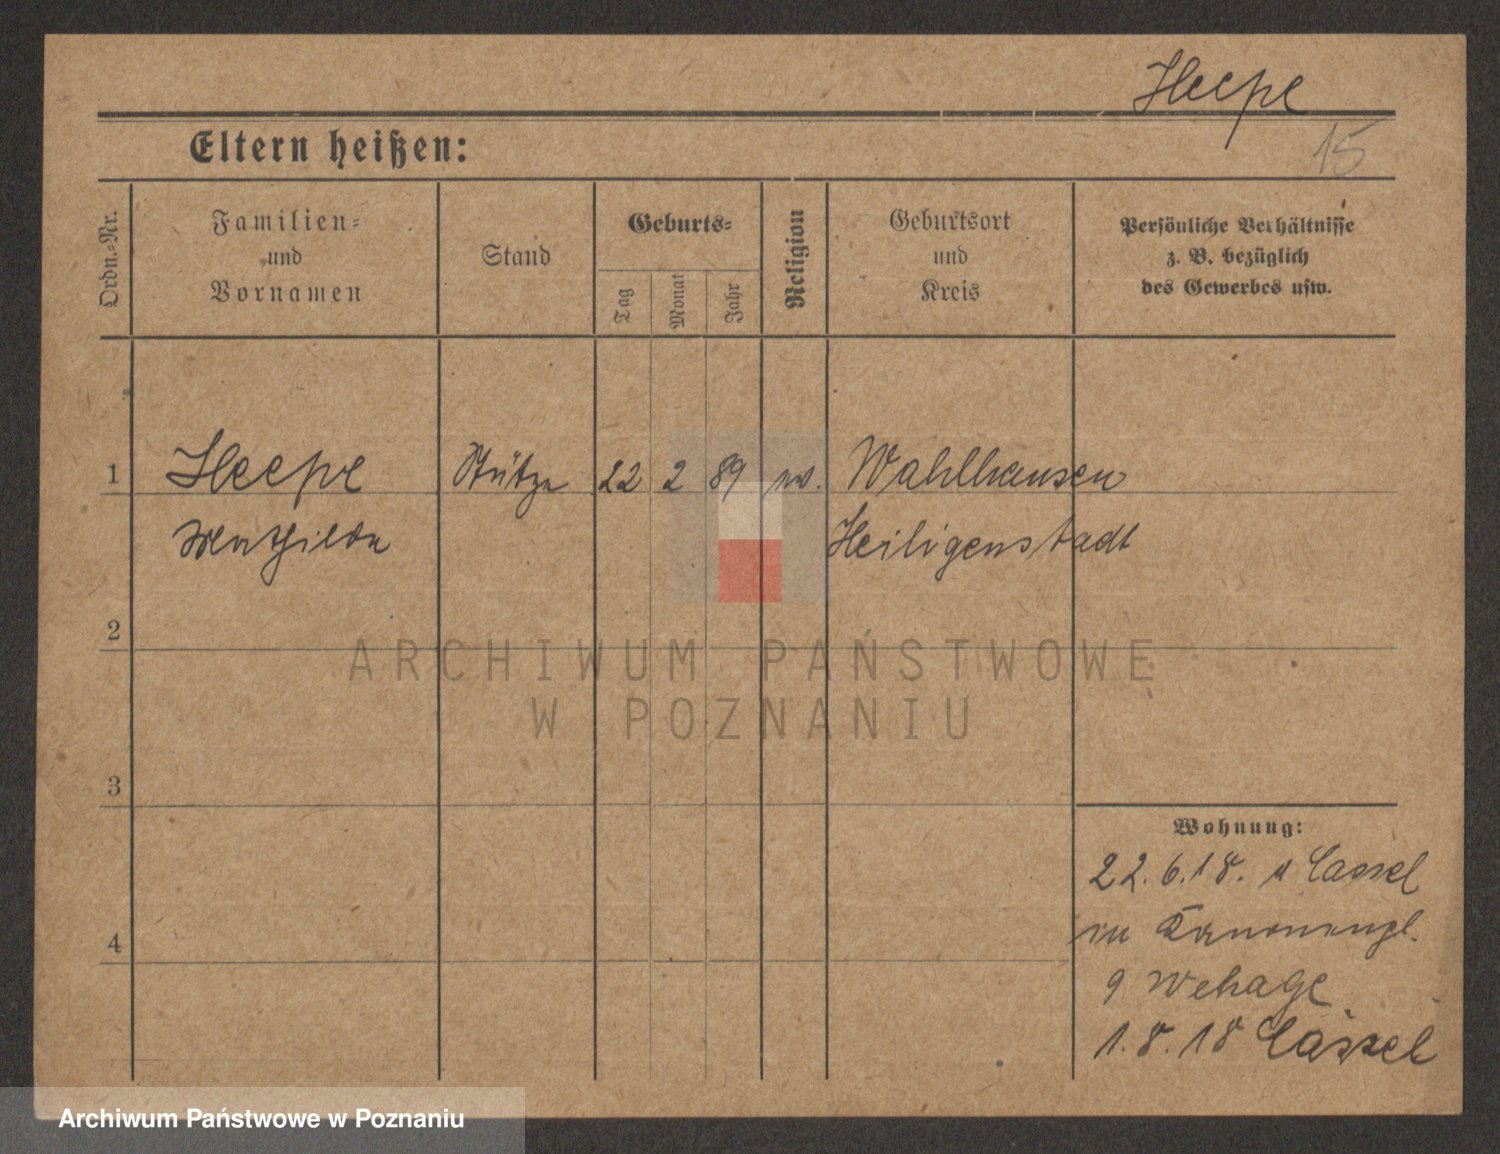 Heepe
15
Eltern heißen:
Ordn.-Nr.
Familien-
und
Vornamen
Stand
Geburts-
Tag
Monat
Jahr
Religion
Geburtsort
und
Kreis
Persönliche Verhältnisse
z. B. bezüglich
des Gewerbes usw.
1
Heepe
Stütze
22
2
89
ev.
Wahlhausen
Mathilde
Heiligenstadt
2
ARCHIWUM PAŃSTWOWE
W POZNANIU
3
Wohnung:
22.6.18. v Cassel
4
9 Wehage
1.8.18 Cassel
Archiwum Państwowe w Poznaniu